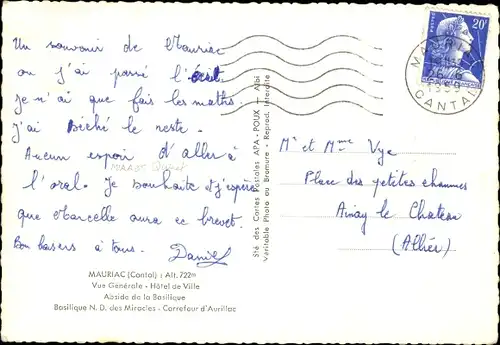 Un souvenir de Mauriac
ou j'ai passé l'écrit
Je n'ai que fais les maths.
J'ai séché le reste.
Aucun espoir d'aller à
l'oral. Je souhaite et j'espère
que Marcelle aura ce brevet.
Bon baisers à tous. Daniel
MAURIAC (Cantal) : Alt. 722m
Vue Générale - Hôtel de Ville
Abside de la Basilique
Basilique N. D. des Miracles - Carrefour d'Aurillac
Sté des Cartes Postales APA - POUX — Albi
Véritable Photo au Bromure - Reprod. Interdite
20F
CANTAL
Mr et Mme Vye
Place des petites chaumes
Ainay le Chateau
(Allier)